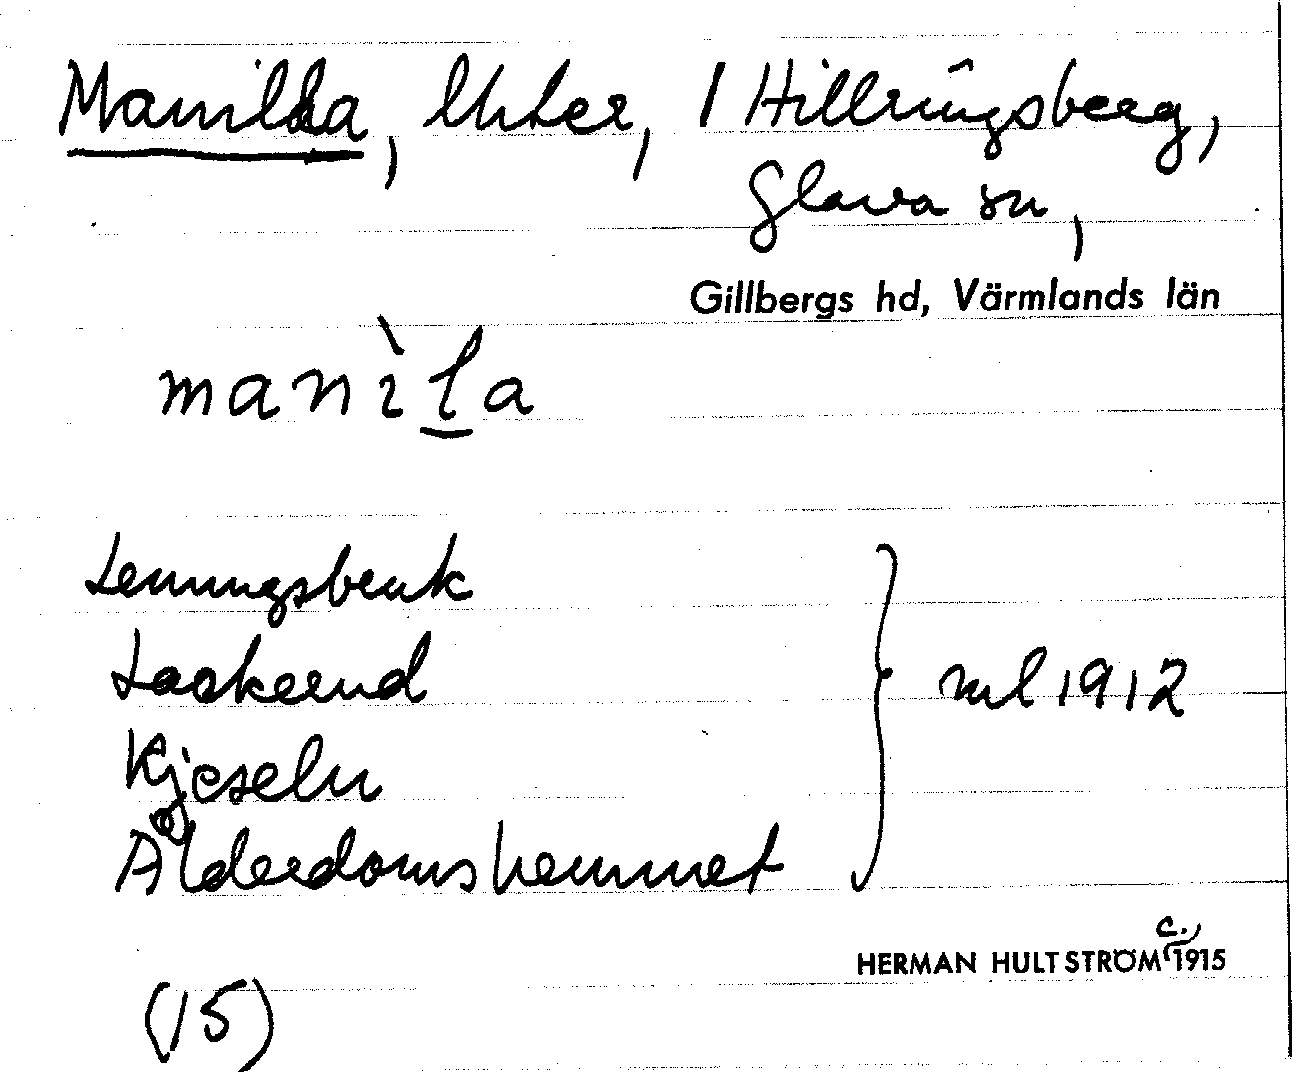 Manilla, lht er, 1 Hillringsberg,
Glava sn,
Gillbergs hd, Värmlands län
manìla
Lenungsbruk
Laskerud
Kjeseln
Ålderdomshemmet
ml 1912
HERMAN HULTSTRÖM c. 1915
(15)